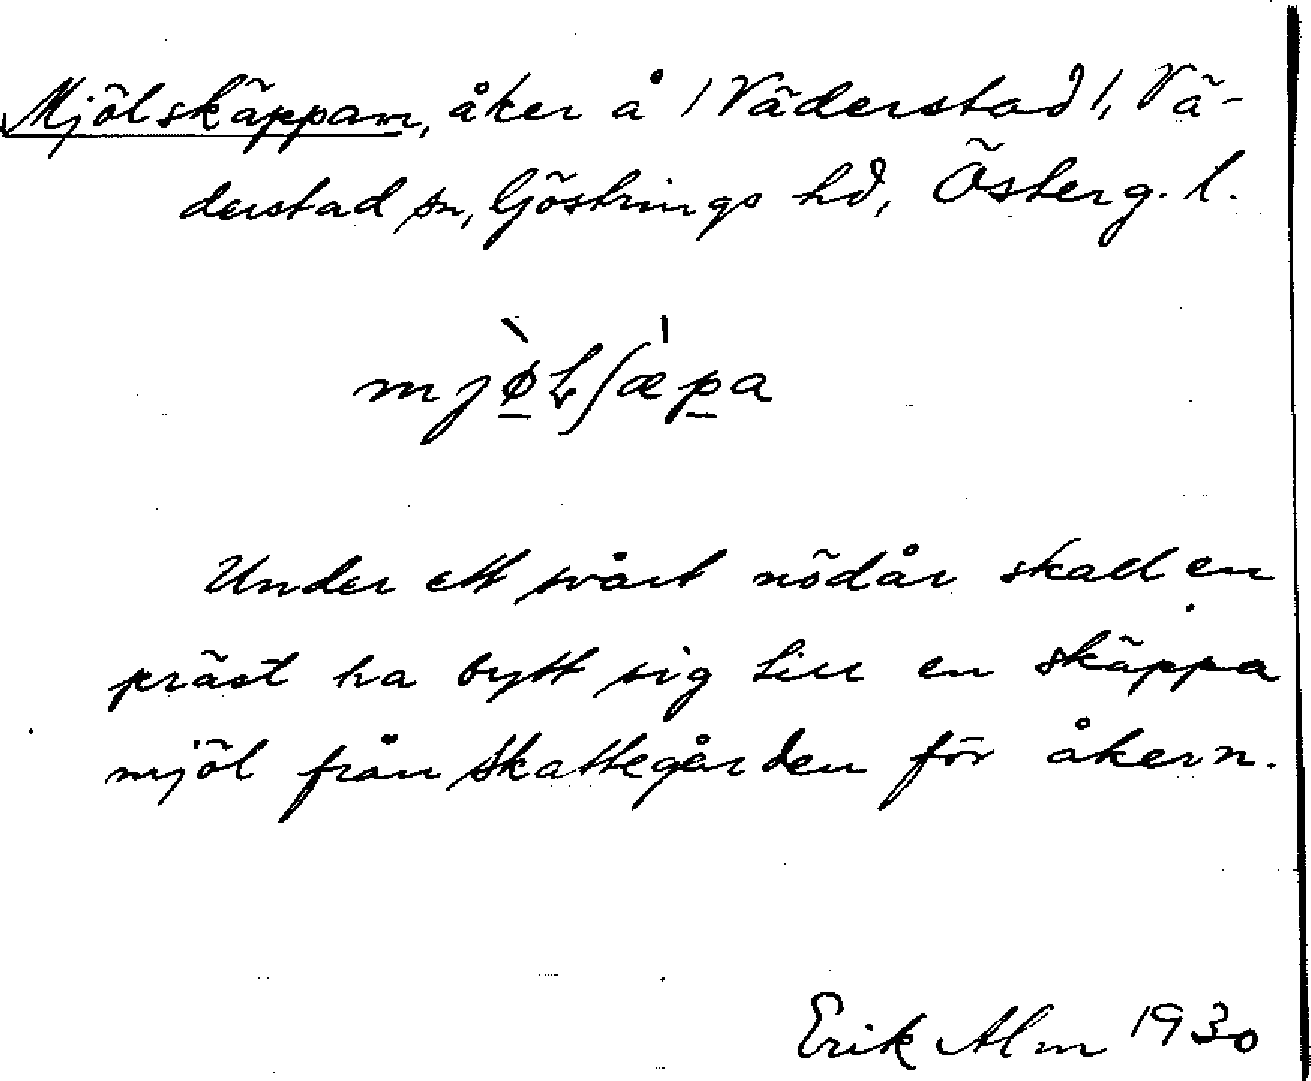 Mjölskäppan, åker å /Väderstad/, Vä-
derstad sn, Göstrings hd, Österg. l.
Under ett svårt nödår skall en
präst ha bytt sig till en skäppa
mjöl från Skattegården för åkern.
Erik Alm 1930